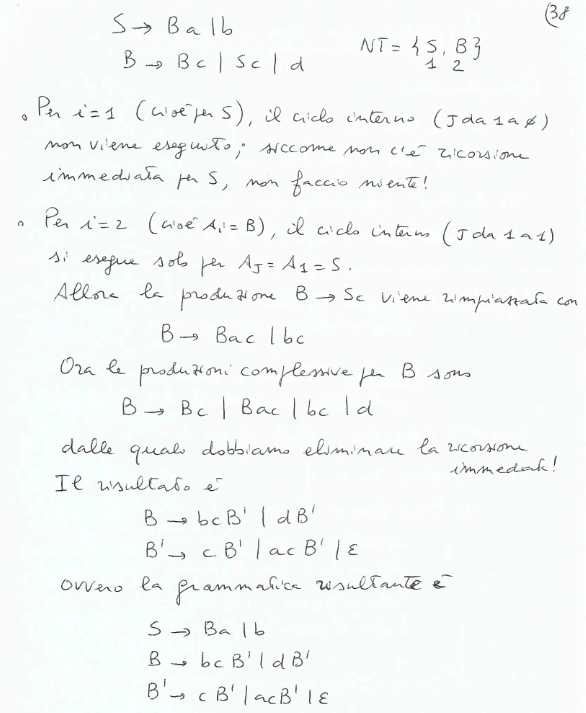 38
S → Ba | b
B → Bc | Sc | d
NT = {S, B}
1 2
• Per i=1 (cioè per S), il ciclo interno (J da 1 a 0)
non viene eseguito; siccome non c'è ricorsione
immediata per S, non faccio niente!
• Per i=2 (cioè Ai = B), il ciclo interno (J da 1 a 1)
si esegue solo per AJ = A1 = S.
Allora la produzione B → Sc viene rimpiazzata con
B → Bac | bc
Ora le produzioni complessive per B sono
B → Bc | Bac | bc | d
dalle quali dobbiamo eliminare la ricorsione
immediata!
Il risultato è
B → bcB' | dB'
B' → cB' | acB' | ε
ovvero la grammatica risultante è
S → Ba | b
B → bcB' | dB'
B' → cB' | acB' | ε